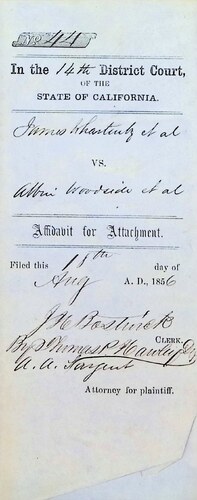 No 44
In the 14th District Court,
OF THE
STATE OF CALIFORNIA.
James et al
VS.
Albin Woodside et al
Affidavit for Attachment.
Filed this 11th day of
Aug A. D., 1856
J H Bostwick
CLERK.
By Thomas P Hawley Dy
A. A. Sargent
Attorney for plaintiff.